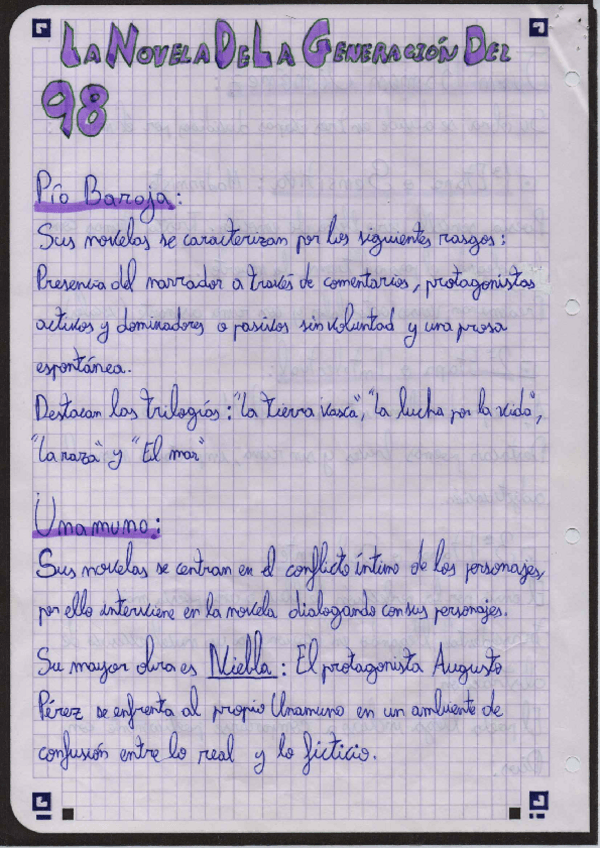 LA NOVELA DE LA GENERACIÓN DEL
98
Pío Baroja:
Sus novelas se caracterizan por los siguientes rasgos:
Presencia del narrador a través de comentarios, protagonistas
activos y dominadores o pasivos sin voluntad y una prosa
espontánea.
Destacan las trilogías: "La tierra vasca", "La lucha por la vida",
"La raza" y "El mar"
Unamuno:
Sus novelas se centran en el conflicto íntimo de los personajes,
por ello interviene en la novela dialogando con sus personajes.
Su mayor obra es Niebla: El protagonista Augusto
Pérez se enfrenta al propio Unamuno en un ambiente de
confusión entre lo real y lo ficticio.